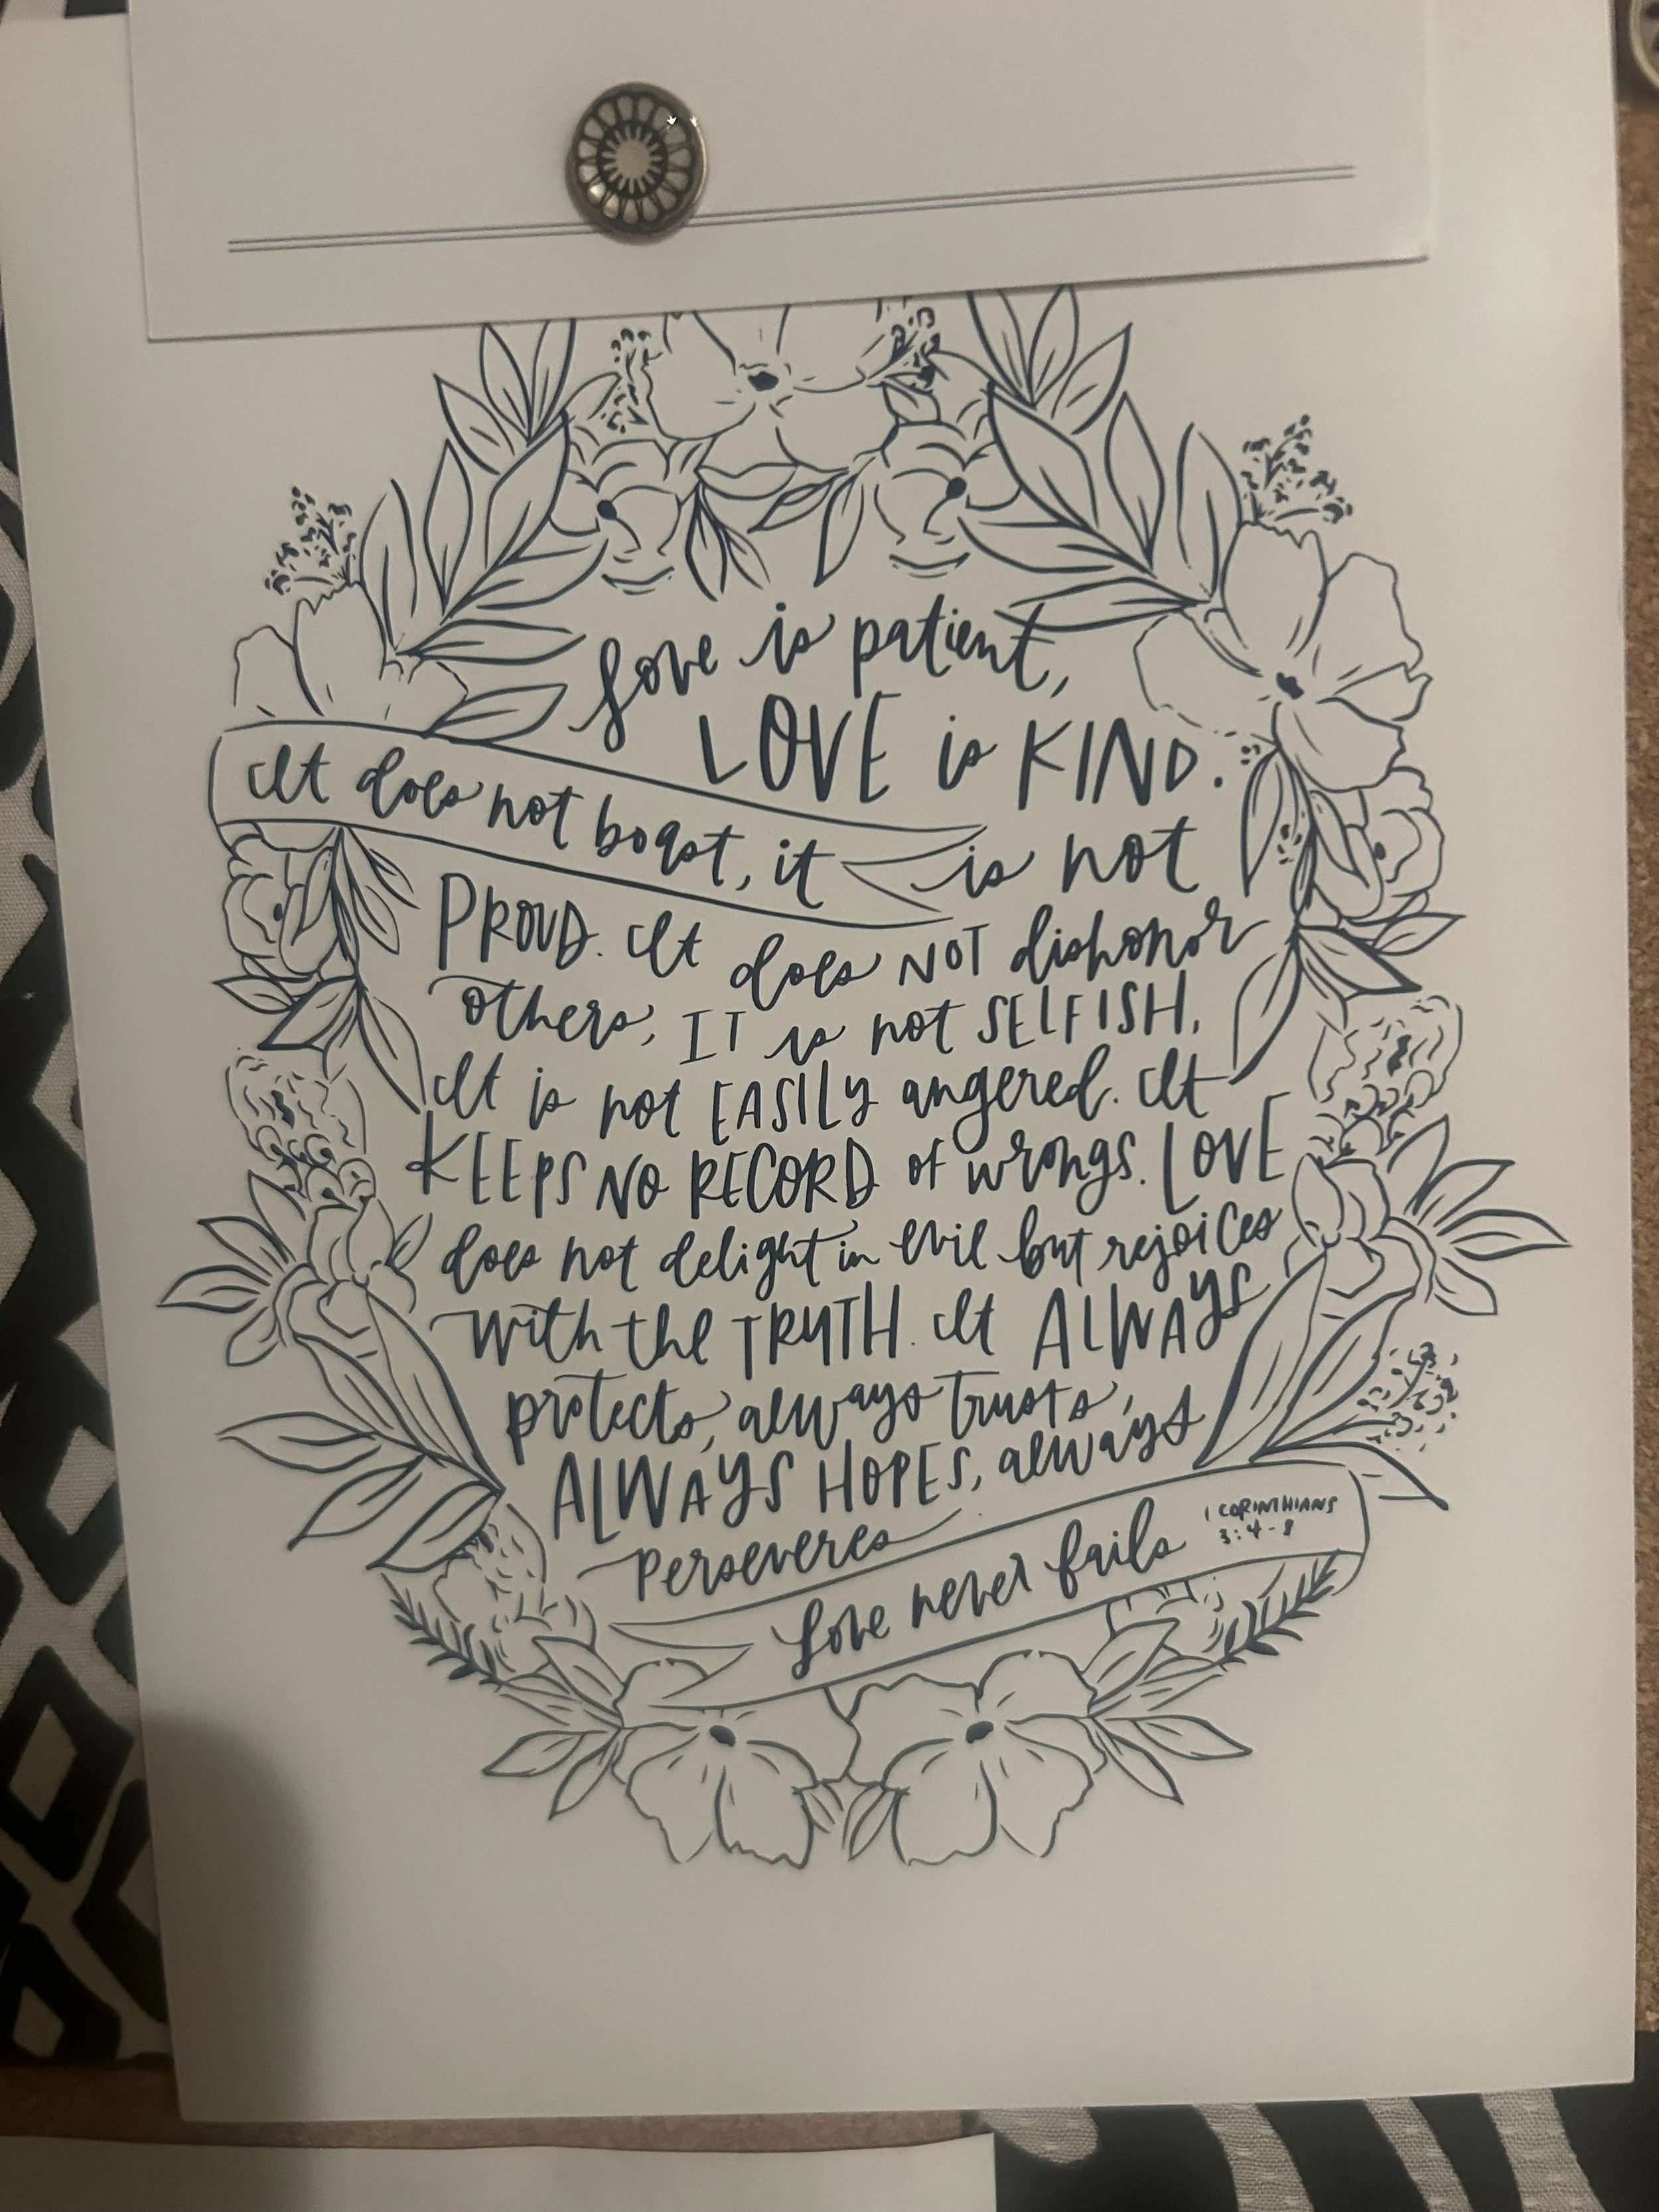 Love is patient,
LOVE is KIND.
It does not boast, it is not
PROUD. It does NOT dishonor
others, IT is not SELFISH,
It is not EASILY angered. It
KEEPS NO RECORD of wrongs. LOVE
does not delight in evil but rejoices
with the TRUTH. It ALWAYS
protects, always trusts,
ALWAYS HOPES, always
Perseveres
Love never fails
1 CORINTHIANS
3:4-8